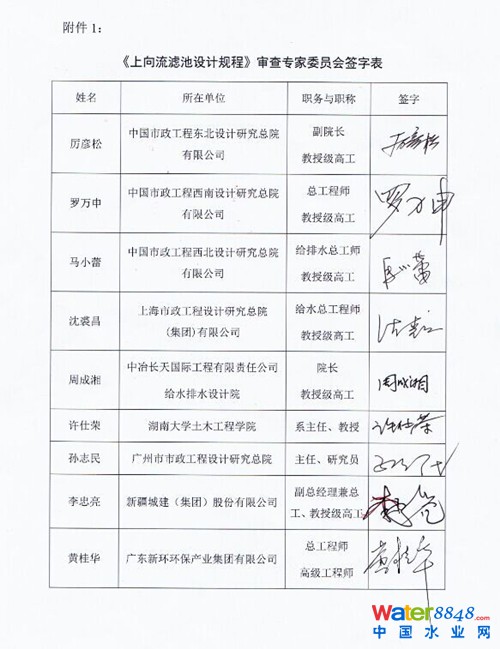 附件1：
《上向流滤池设计规程》审查专家委员会签字表
姓名 所在单位 职务与职称 签字
厉彦松 中国市政工程东北设计研究总院有限公司 副院长 教授级高工 厉彦松
罗万申 中国市政工程西南设计研究总院有限公司 总工程师 教授级高工 罗万申
马小蕾 中国市政工程西北设计研究总院有限公司 给排水总工师 教授级高工 马小蕾
沈裘昌 上海市政工程设计研究总院(集团)有限公司 给水总工程师 教授级高工
周成湘 中冶长天国际工程有限责任公司 给水排水设计院 院长 教授级高工 周成湘
许仕荣 湖南大学土木工程学院 系主任、教授 许仕荣
孙志民 广州市市政工程设计研究总院 主任、研究员
李忠亮 新疆城建（集团）股份有限公司 副总经理兼总工、教授级高工
黄桂华 广东新环环保产业集团有限公司 总工程师 高级工程师 黄桂华
Water8848.com
中国水业网